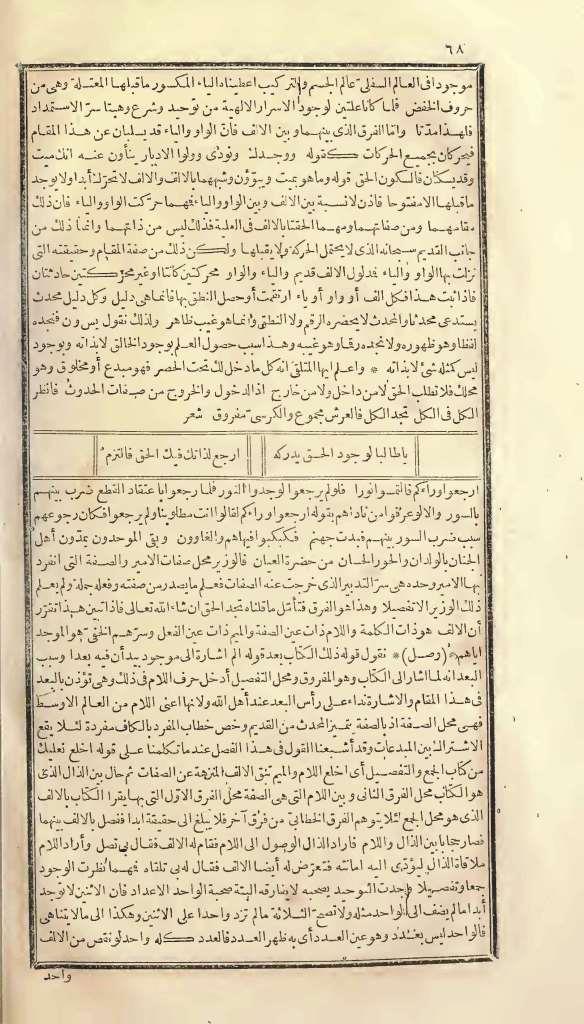 ٦٨
موجودا فى العالم السفلى عالم الجسم والتركيب أعطيناه الياء المكسور ما قبلها المعتلة وهى من
حروف الخفض فلما كانا علتين لوجود الاسرار الالهية من توحيد وشرع وهبنا سر الاستمداد
فلهذا مدتا وأما الفرق الذى بينهما وبين الالف فان الواو والياء قد يسلبان عن هذا المقام
فيحركان بجميع الحركات كقوله ووجدك وتؤوى وولوا الادبار ينأون عنه انك ميت
وقد يسكنان فى السكون الحى كقوله وما هو بميت وينؤن وشبههما والالف لا تحرك أبدا ولا يوجد
ما قبلها الا مفتوحا فاذن لا نسبة بين الالف وبين الواو والياء فمهما حركت الواو والياء فان ذلك
مقامهما ومن صفاتهما ومهما الحقتا بالالف فى العلية فذلك ليس من ذاتهما وانما ذلك من
جانب القديم سبحانه الذى لا يحتمل الحركة ولا يقبلها ولكن ذلك من صفة المقام وحقيقته التى
نزلت بها الواو والياء فدلول الالف قديم والياء والواو محركتين كانتا أو غير محركتين حادثتان
فاذا ثبت هذا فكل الف أو واو أو ياء ارتقمت أو حصل النطق بها فانما هى دليل وكل دليل محدث
يستدعى محدثا والمحدث لا يحصره الرقم ولا النطق وانما هو غيب ظاهر ولذلك نقول يس ون فنجده
لفظا وهو ظهوره ولا نجده رقما وهو غيبه وهذا سبب حصول العلم بوجود الخالق لا بذاته وبوجود
ليس كمثله شئ لا بذاته * واعلم أيها المتلقى انه كل ما دخل لك تحت الحصر فهو مبدع أو مخلوق وهو
محلك فلا تطلب الحق لا من داخل ولا من خارج اذ الدخول والخروج من صفات الحدوث فانظر
الكل فى الكل تجد الكل فالعرش مجموع والكرسى مفروق شعر
ياطالبا لوجود الحق يدركه ارجع لذاتك فيك الحق فالتزم
ارجعوا وراءكم فالتمسوا نورا فلو لم يرجعوا لوجدوا النور فلما رجعوا باعتقاد القطع ضرب بينهم
بالسور والا لو عرفوا من ناداهم بقوله ارجعوا وراءكم لقالوا أنت مطلوبنا ولم يرجعوا فكان رجوعهم
سبب ضرب السور بينهم فبدت جهنم فكبكبوا فيها هم والغاوون وبقى الموحدون يمدون أهل
الجنان بالولدان والحور الحسان من حضرة العيان فالوزير محل صفات الامير والصفة التى انفرد
بها الامير وحده هى سر التدبير الذى خرجت عنه الصفات فعلم ما يصدر من صفته وفعله جملة ولم يعلم
ذلك الوزير الا تفصيلا وهذا هو الفرق فتأمل ما قلناه تجد الحق ان شاء الله تعالى فاذا تبين هذا تقرر
أن الالف هو ذات الكلمة واللام ذات عين الصفة والميم ذات عين الفعل وسرهم الخفى هو الموجد
اياهم (وصل) * نقول قوله ذلك الكتاب بعد قوله الم اشارة الى موجود بيد أن فيه بعدا وسبب
البعد انه لما اشار الى الكتاب وهو المفروق ومحل التفصيل أدخل حرف اللام فى ذلك وهى تؤذن بالبعد
فى هذا المقام والاشارة نداء على رأس البعد عند أهل الله ولانها اعنى اللام من العالم الاوسط
فهى محل الصفة اذ بالصفة يتميز المحدث من القديم وخص خطاب المفرد بالكاف مفردة لئلا يقع
الاشتراك بين المبدعات وقد أشبعنا القول فى هذا الفصل عند ما تكلمنا على قوله اخلع نعليك
من كتاب الجمع والتفصيل أى اخلع اللام والميم تبق الالف المنزهة عن الصفات ثم حال بين الذال الذى
هو الكتاب محل الفرق الثانى وبين اللام التى هى الصفة محل الفرق الاول التى بها يقرا الكتاب بالالف
الذى هو محل الجمع لئلا يتوهم الفرق الخطابى من فرق آخر فلا يبلغ الى حقيقة ابدا ففصل بالالف بينهما
فصار حجابا بين الذال واللام فاراد الذال الوصول الى اللام فقام له الالف فقال بى تصل وأراد اللام
ملاقاة الذال ليؤدى اليه امانته فتعرض له أيضا الالف فقال له بى تلقاه فمهما نظرت الوجود
جمعا وتفصيلا وجدت التوحيد يصحبه لا يفارقه البتة صحبة الواحد الاعداد فان الاثنين لا توجد
أبدا ما لم يضف الى الواحد مثله ولا تصح الثلاثة ما لم تزد واحدا على الاثنين وهكذا الى ما لا يتناهى
فالواحد ليس بعدد وهو عين العدد أى به ظهر العدد فالعدد كله واحد لو نقص من الالف
واحد